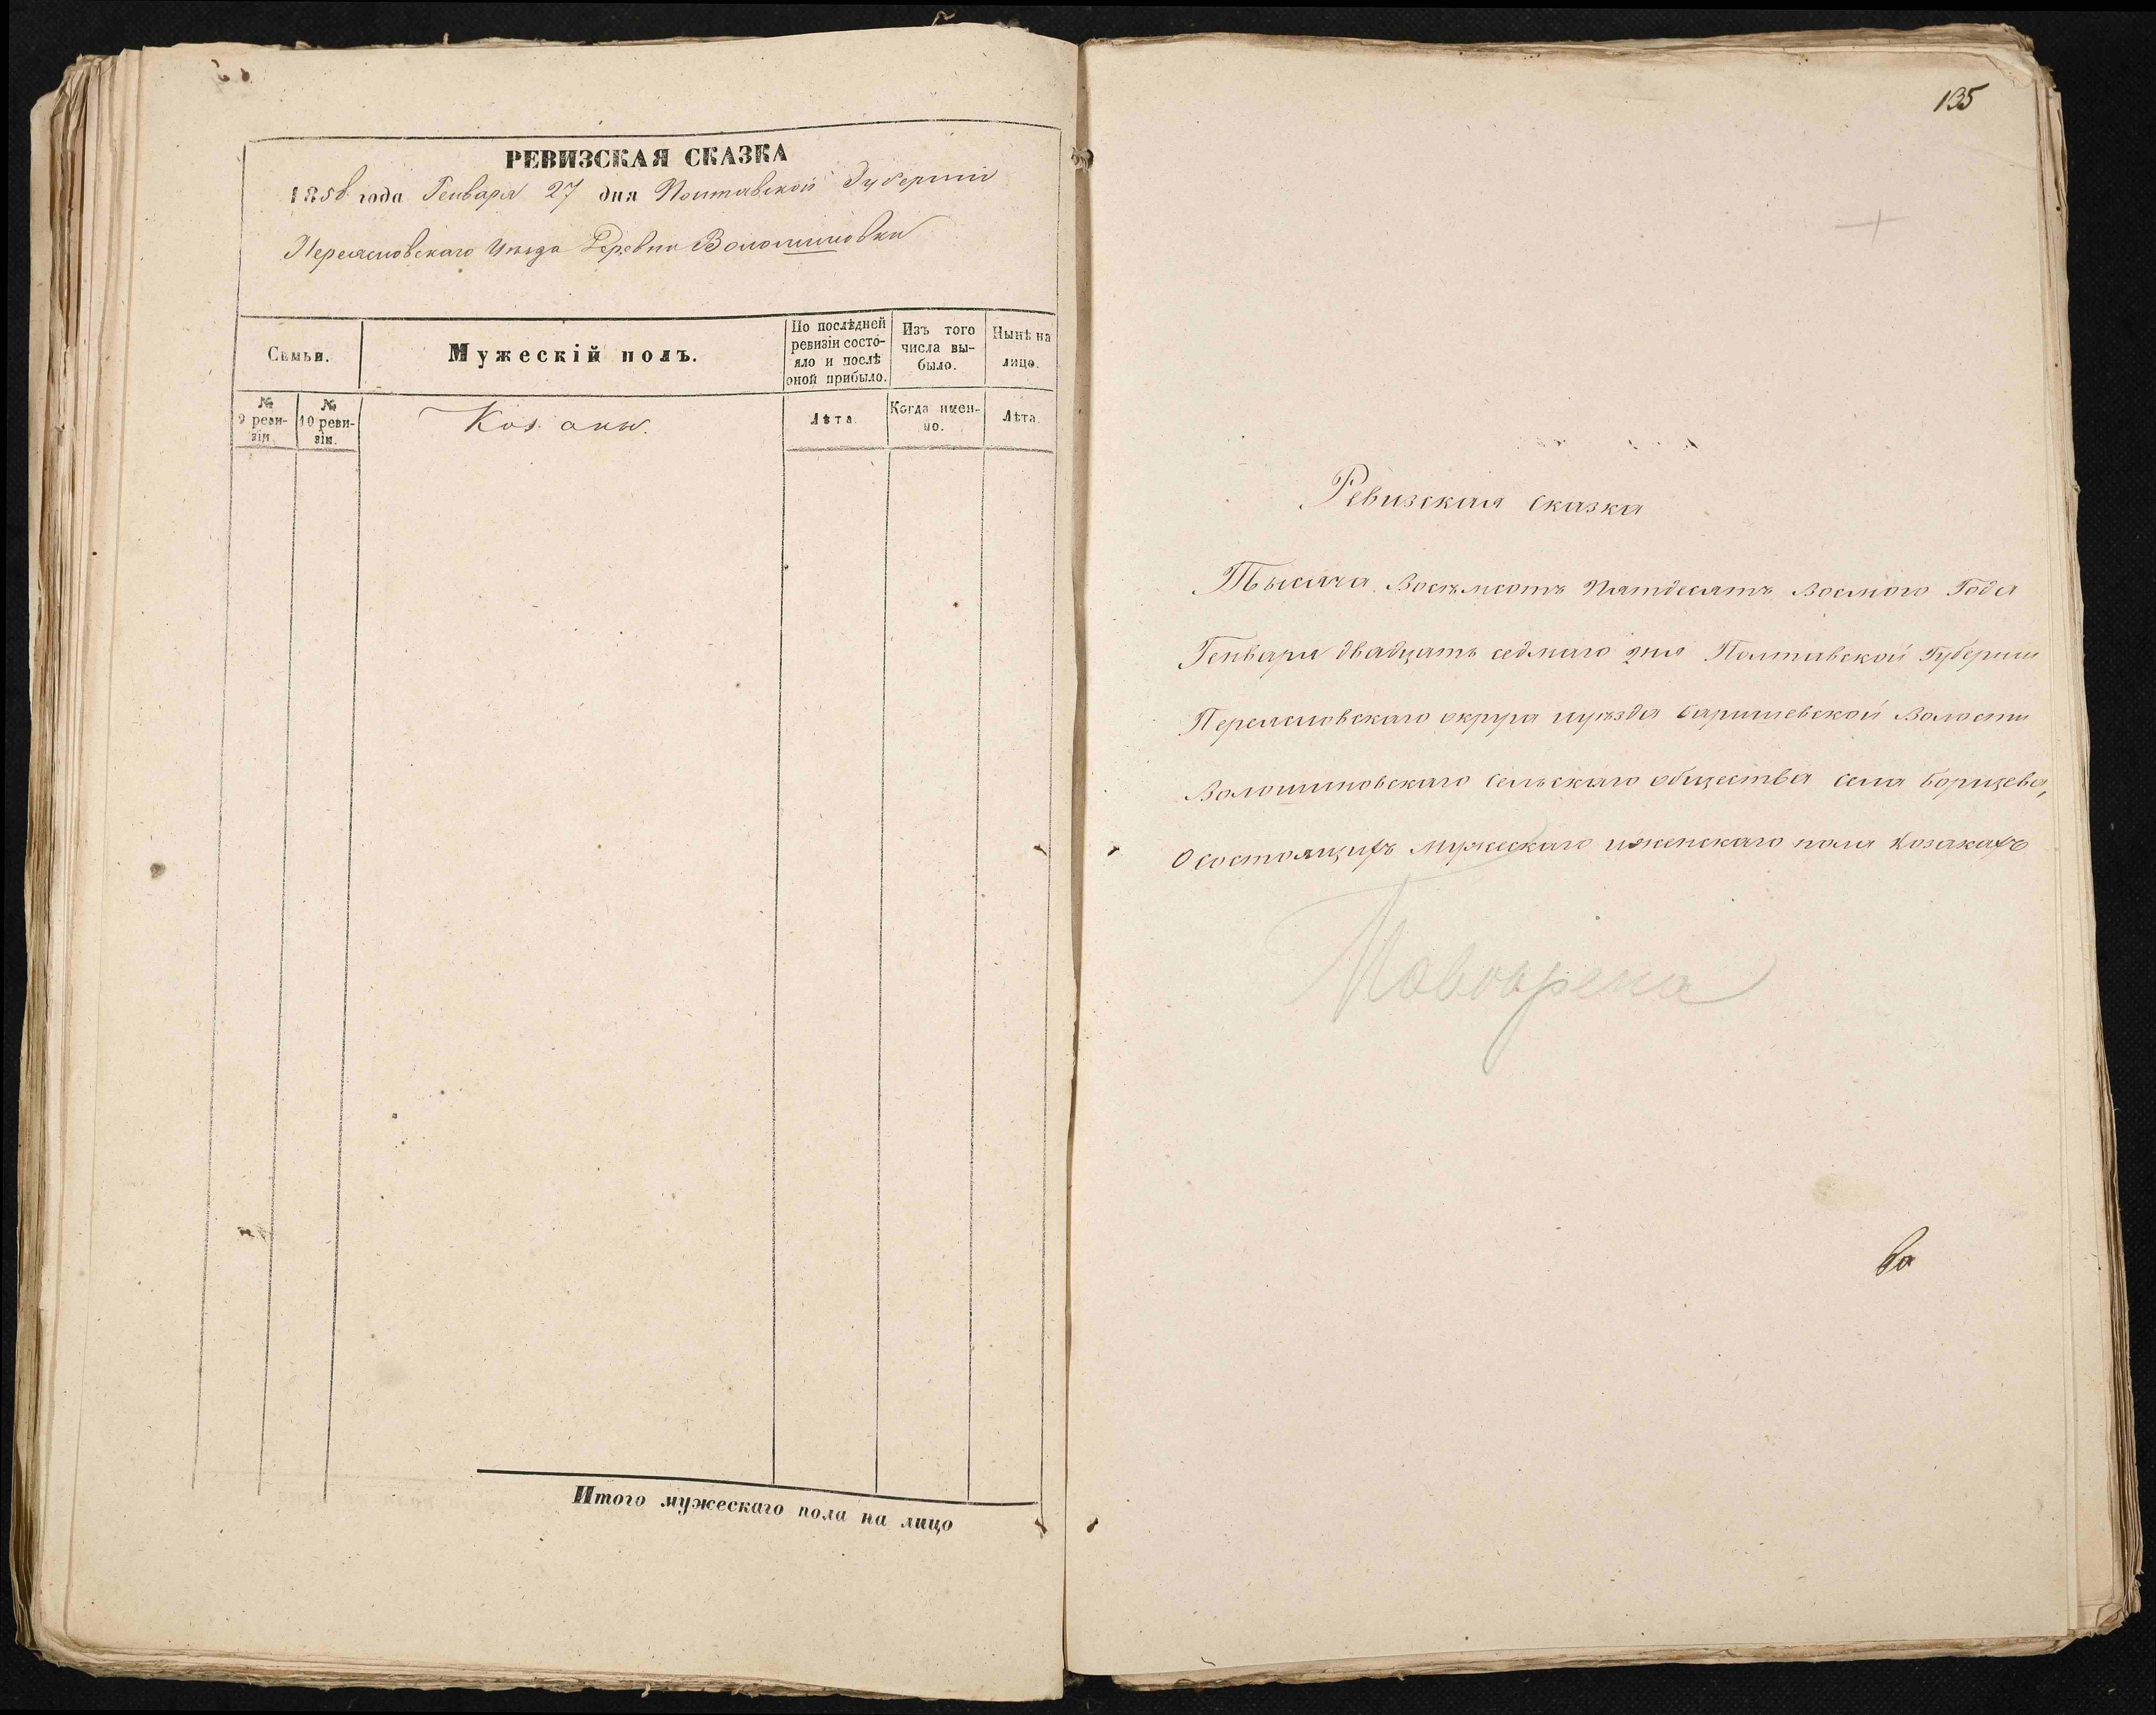 РЕВИЗСКАЯ СКАЗКА
1858 года Генваря 27 дня Полтавской Губернии
Переяславскаго Уѣзда Деревни Волошиновки
Семьи.
Мужескій полъ.
По послѣдней ревизіи состо-
яло и послѣ
оной прибыло.
Изъ того
числа вы-
было.
Нынѣ на
лицо.
№
9 реви-
зіи.
№
10 реви-
зіи.
Козаки.
Лѣта.
Когда имен-
но.
Лѣта.
Итого мужескаго пола на лицо
135
Ревизская сказка
Тысяча Восѣмсотъ Пятдесятъ Восмого Года
Генваря двадцать седмаго дня Полтавской Губернии
Переясловскаго округа иуѣзда Баришевской Волости
Волошиновскаго Сельскаго общества села Борщева,
О состоящихъ мужескаго иженскаго пола Козакахъ